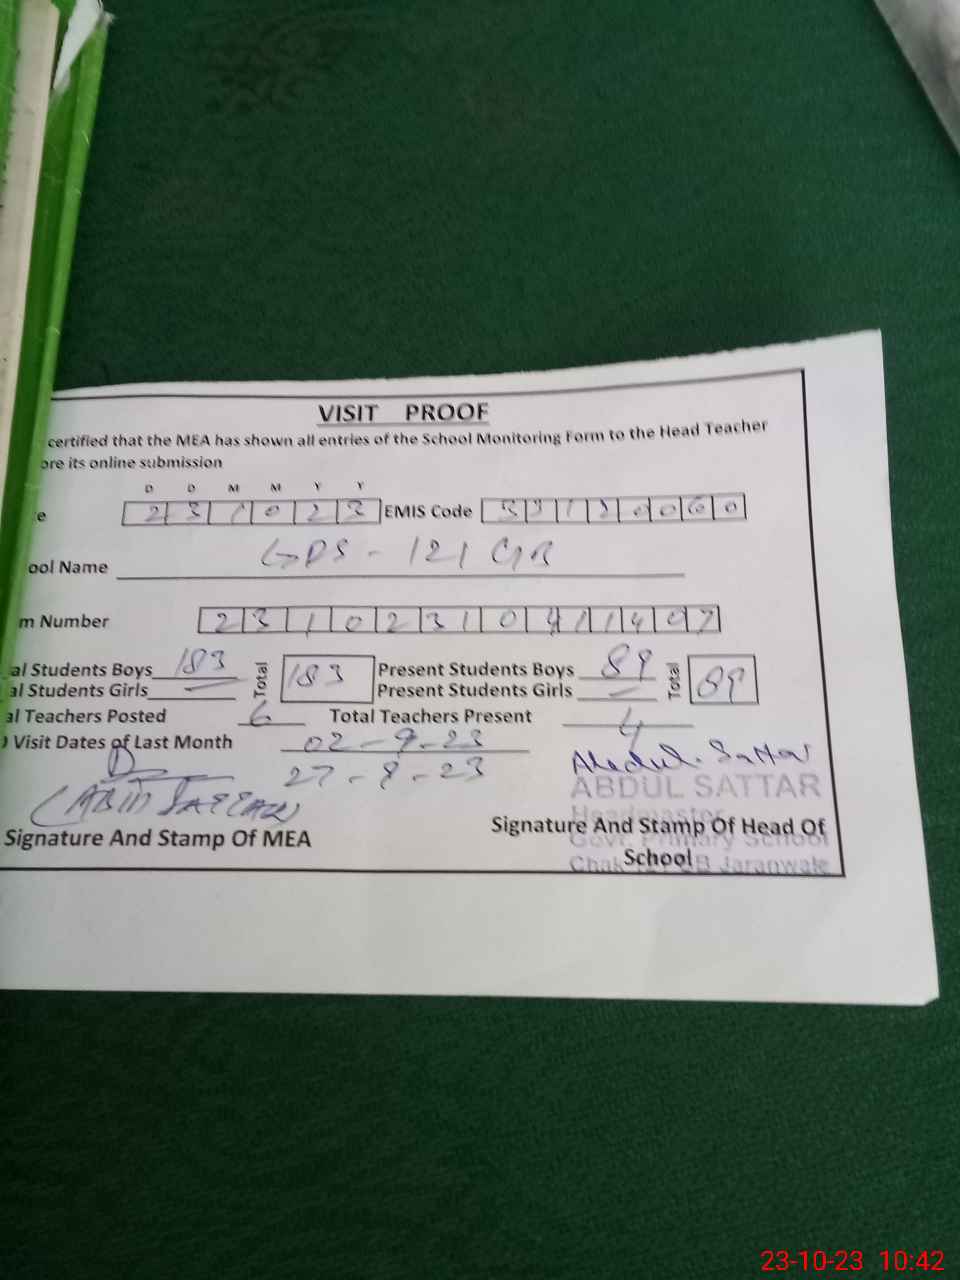 VISIT PROOF
certified that the MEA has shown all entries of the School Monitoring Form to the Head Teacher
ore its online submission
D D M M Y Y
e 2 3 1 0 2 3 EMIS Code 3 3 1 1 0 0 6 0
ool Name GPS - 121 GB
m Number 2 3 1 0 2 3 1 0 4 1 1 4 0 7
al Students Boys 183 Total 183 Present Students Boys 89 Total 89
al Students Girls — Present Students Girls —
al Teachers Posted 6 Total Teachers Present 4
Visit Dates of Last Month 02-9-23
27-8-23
Abdul. Sattar
ABDUL SATTAR
Headmaster
Signature And Stamp Of MEA Signature And Stamp Of Head Of
Govt. Primary School
School
Chak GB Jaranwala
23-10-23 10:42